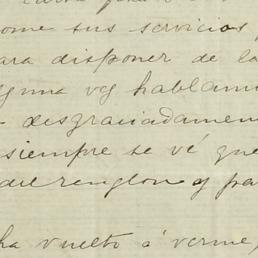 carta para
ome sus servicios,
ara disponer de la
lguna vez hablami
desgraciadamen
siempre se vé que
del renglon y pa
ha vuelto á verme,